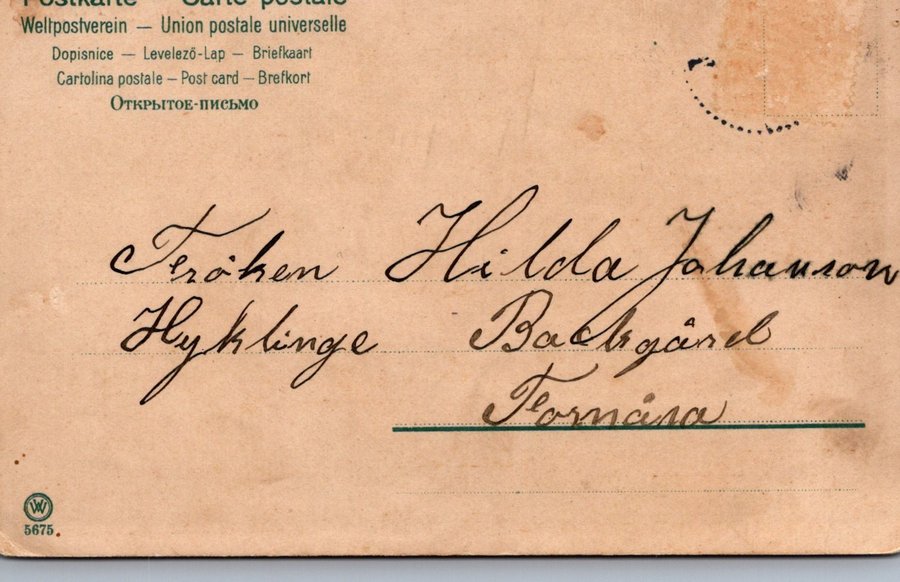 Postkarte — Carte postale
Weltpostverein — Union postale universelle
Dopisnice — Levelező-Lap — Briefkaart
Cartolina postale — Post card — Brefkort
Открытое-письмо
Fröken Hilda Johanson
Hyklinge Backgård
Tornåsa
W W
5675